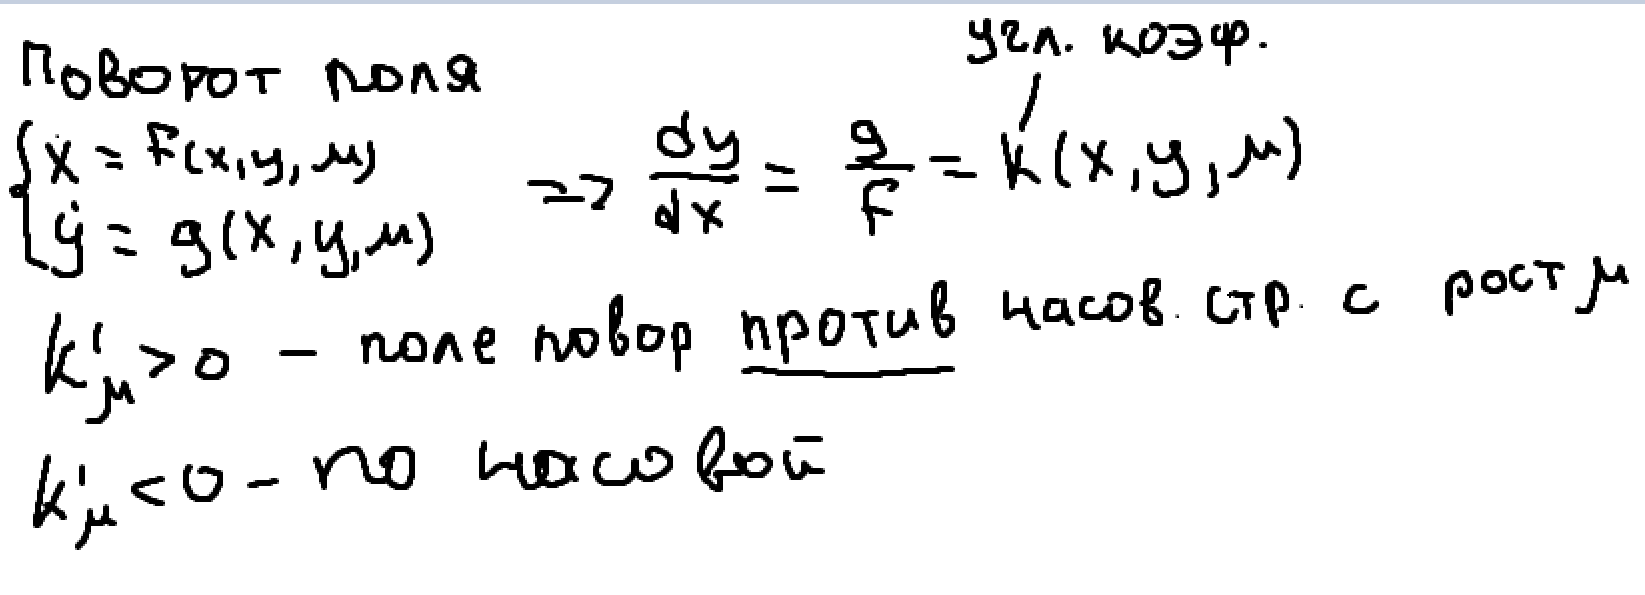 угл. коэф.
Поворот поля
{ẋ = f(x,y,μ)
{ẏ = g(x,y,μ)
=> dy/dx = g/f = k(x,y,μ)
k'μ>0 – поле повор против часов. стр. с рост μ
k'μ<0 – по часовой